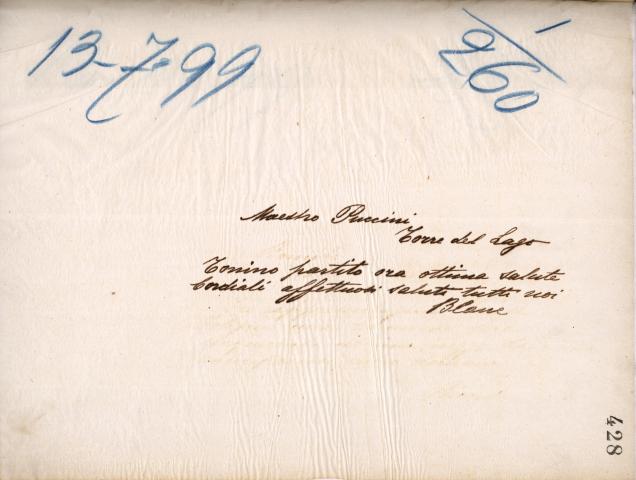 13-7-99
1/260
Maestro Puccini
Torre del Lago
Tonino partito ora ottima salute
Cordiali affettuosi saluti tutti noi
Blanc
428